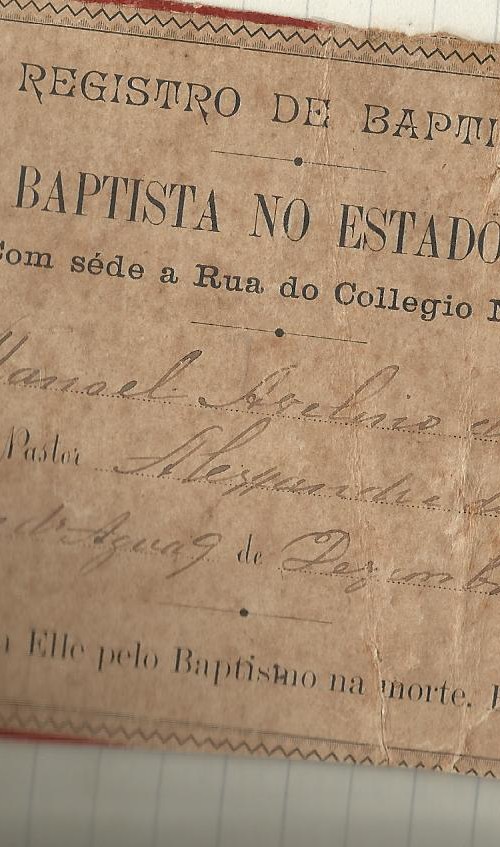 REGISTRO DE BAPTI
BAPTISTA NO ESTADO
Com séde a Rua do Collegio
Manoel Avelino
Pastor Alexandre d
d'Agua 9 de Dezemb
Elle pelo Baptismo na morte.